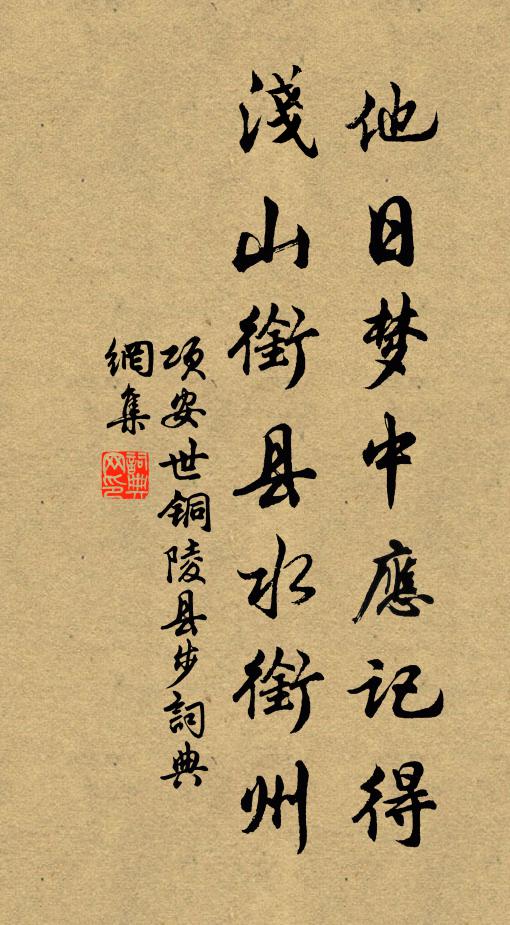 他日梦中應记得
淺山銜县水銜州
项安世铜陵县步詞典
網集
詞典网印